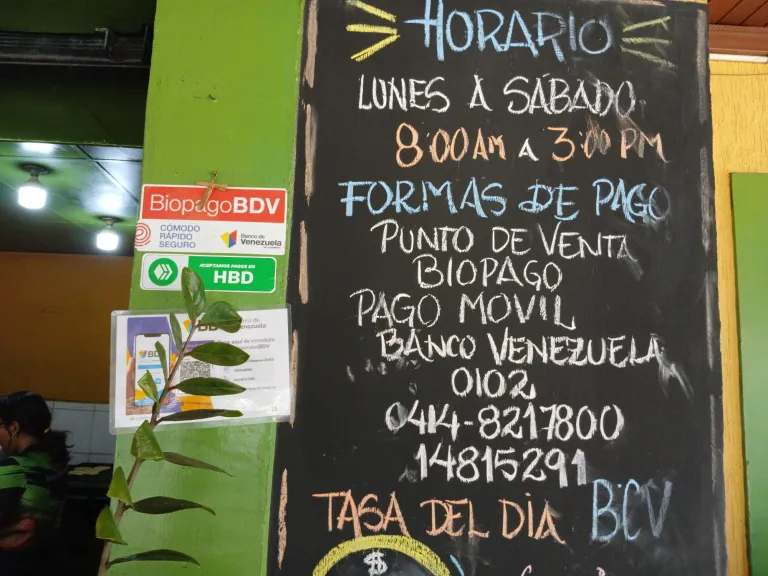 HORARIO
LUNES A SÁBADO
8:00 AM A 3:00 PM
FORMAS DE PAGO
PUNTO DE VENTA
BIOPAGO
PAGO MOVIL
BANCO VENEZUELA
0102
0414-8217800
14815291
TASA DEL DIA BCV
$
BiopagoBDV
CÓMODO
RÁPIDO
SEGURO
Banco de
Venezuela
ACEPTAMOS PAGOS EN
HBD